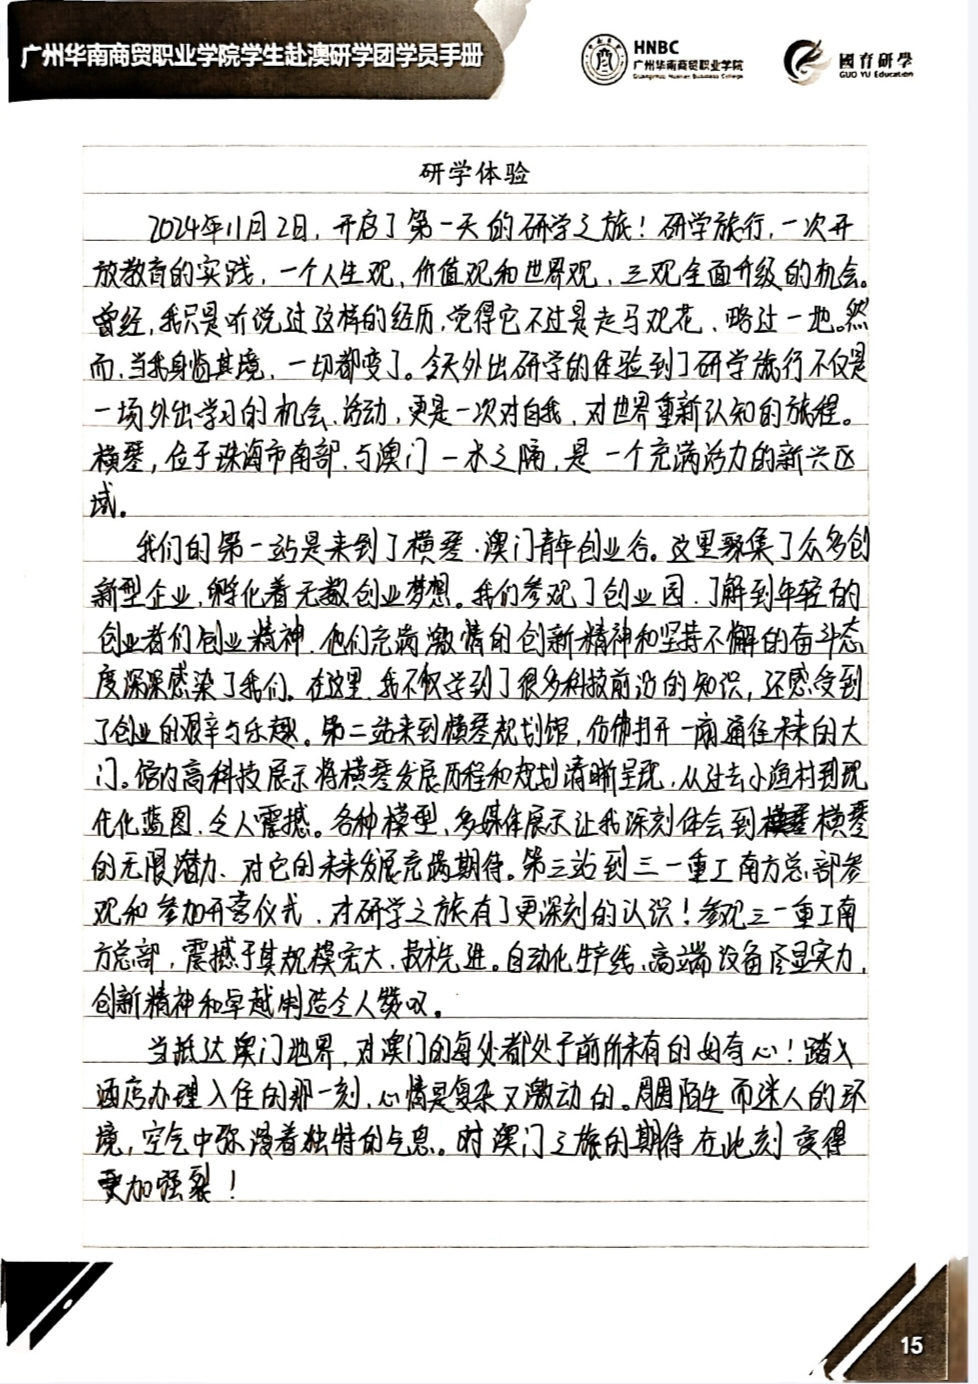 广州华南商贸职业学院学生赴澳研学团学员手册
HNBC
广州华南商贸职业学院
Guangzhou Huanan Business College
國育研學
GUO YU Education
研学体验
2024年11月2日,开启了第一天的研学之旅!研学旅行,一次开
放教育的实践,一个人生观、价值观和世界观,三观全面升级的机会。
曾经,我只是听说过这样的经历,觉得它不过是走马观花、略过一地。然
而,当我身临其境,一切都变了。今天外出研学的体验到了研学旅行不仅是
一场外出学习的机会、活动,更是一次对自我,对世界重新认知的旅程。
横琴,位于珠海市南部,与澳门一水之隔,是一个充满活力的新兴区
域。
我们的第一站是来到了横琴·澳门青年创业谷。这里聚集了众多创
新型企业,孵化着无数创业梦想。我们参观了创业园,了解到年轻的
创业者们创业精神,他们充满激情的创新精神和坚持不懈的奋斗态
度深深感染了我们。在这里,我不仅学到了很多科技前沿的知识,还感受到
了创业的艰辛与乐趣。第二站来到横琴规划馆,仿佛打开一扇通往未来的大
门。馆内高科技展示将横琴发展历程和规划清晰呈现,从过去小渔村到现
代化蓝图,令人震撼。各种模型、多媒体展示让我深刻体会到横琴
的无限潜力、对它的未来发展充满期待。第三站到三一重工南方总部参
观和参加开营仪式,对研学之旅有了更深刻的认识!参观三一重工南
方总部,震撼于其规模宏大、技术先进。自动化生产线、高端设备尽显实力,
创新精神和卓越制造令人赞叹。
当抵达澳门地界,对澳门的每处都处于前所未有的好奇心!踏入
酒店办理入住的那一刻,心情是复杂又激动的。周围陌生而迷人的环
境,空气中弥漫着独特的气息。对澳门之旅的期待在此刻变得
更加强烈!
15